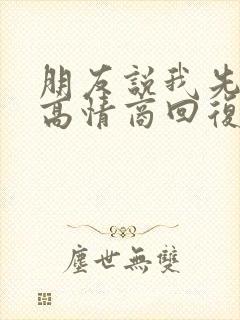 朋友説我先
高情商回復
塵世無雙